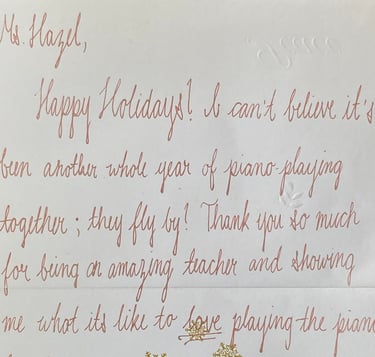 Ms. Hazel,
Happy Holidays! I can't believe it's
been another whole year of piano-playing
together; they fly by! Thank you so much
for being an amazing teacher and showing
me what its like to love playing the piano